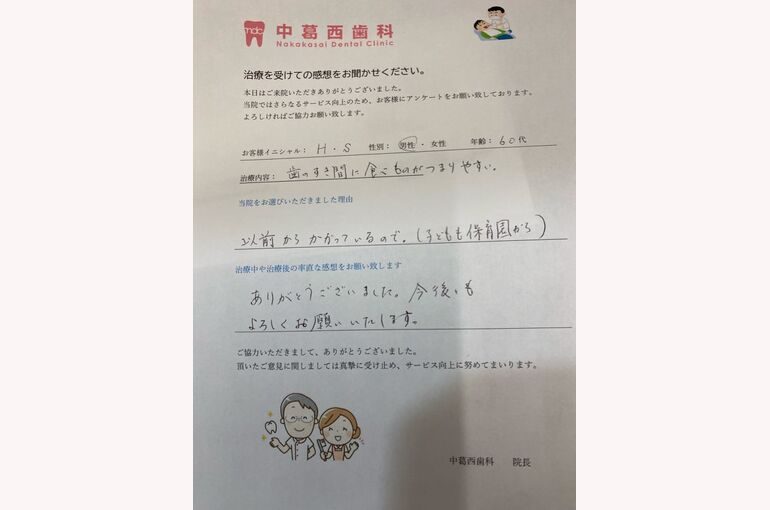 mdc 中葛西歯科
Nakakasai Dental Clinic
治療を受けての感想をお聞かせください。
本日はご来院いただきありがとうございました。
当院ではさらなるサービス向上のため、お客様にアンケートをお願い致しております。
よろしければご協力お願い致します。
お客様イニシャル： H・S 性別： 男性 ・ 女性 年齢： 60代
治療内容： 歯のすき間に食べものがつまりやすい。
当院をお選びいただきました理由
以前からかかっているので。(子どもも保育園から)
治療中や治療後の率直な感想をお願い致します
ありがとうございました。今後も
よろしくお願いいたします。
ご協力いただきまして、ありがとうございました。
頂いたご意見に関しましては真摯に受け止め、サービス向上に努めてまいります。
中葛西歯科 院長